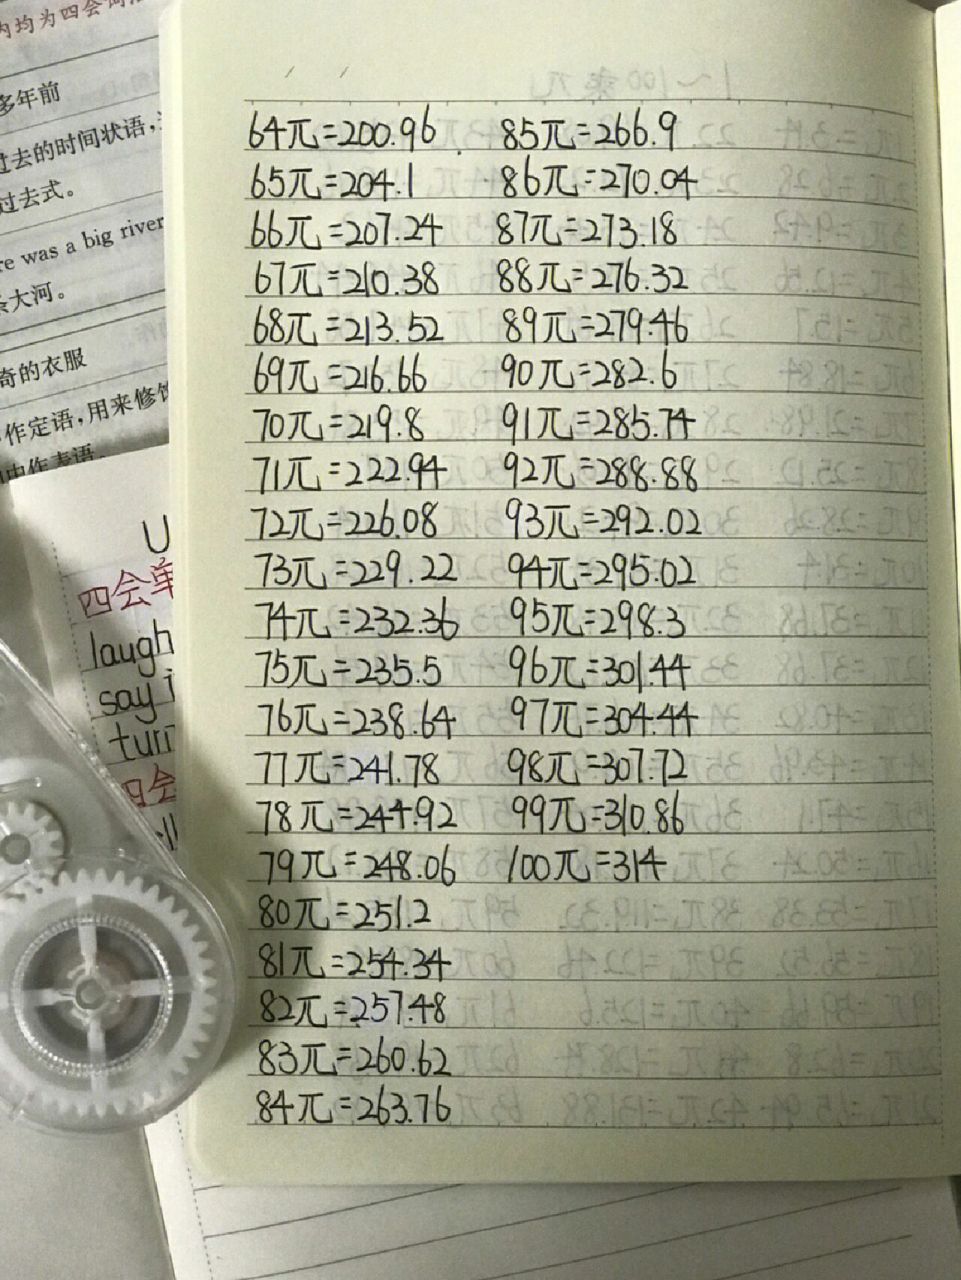 内均为四会词
多年前
过去的时间状语,
过去式。
re was a big river
条大河。
奇的衣服
作定语,用来修饰
中作表语
U
四会单
laugh
say i
turn
四会
64π=200.96 85π=266.9
65π=204.1 86π=270.04
66π=207.24 87π=273.18
67π=210.38 88π=276.32
68π=213.52 89π=279.46
69π=216.66 90π=282.6
70π=219.8 91π=285.74
71π=222.94 92π=288.88
72π=226.08 93π=292.02
73π=229.22 94π=295.02
74π=232.36 95π=298.3
75π=235.5 96π=301.44
76π=238.64 97π=304.44
77π=241.78 98π=307.72
78π=244.92 99π=310.86
79π=248.06 100π=314
80π=251.2
81π=254.34
82π=257.48
83π=260.62
84π=263.76